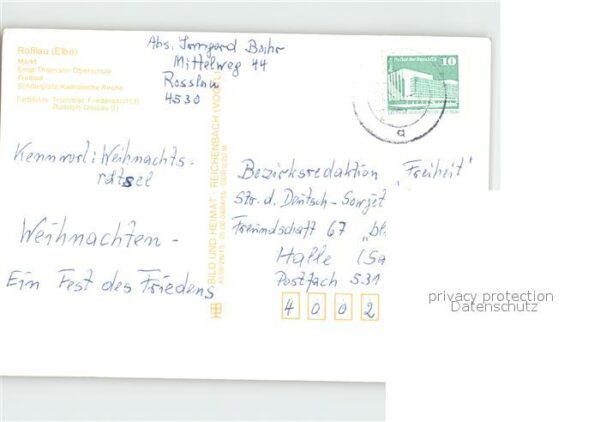 Roßlau (Elbe)
Markt
Ernst-Thälmann-Oberschule
Freibad
Schillerplatz, Katholische Kirche
Abs. Irmgard Bohr
Mittelweg 44
Rosslau
4530
10
Kennwort: Weihnachts-
rätsel
Weihnachten -
Ein Fest des Friedens
BILD UND HEIMAT REICHENBACH (VOGTL)
Bezirksredaktion "Freiheit"
Str. d. Deutsch-Sowjet
Freundschaft 67
Halle (Sa
Postfach 531
4002
privacy protection
Datenschutz